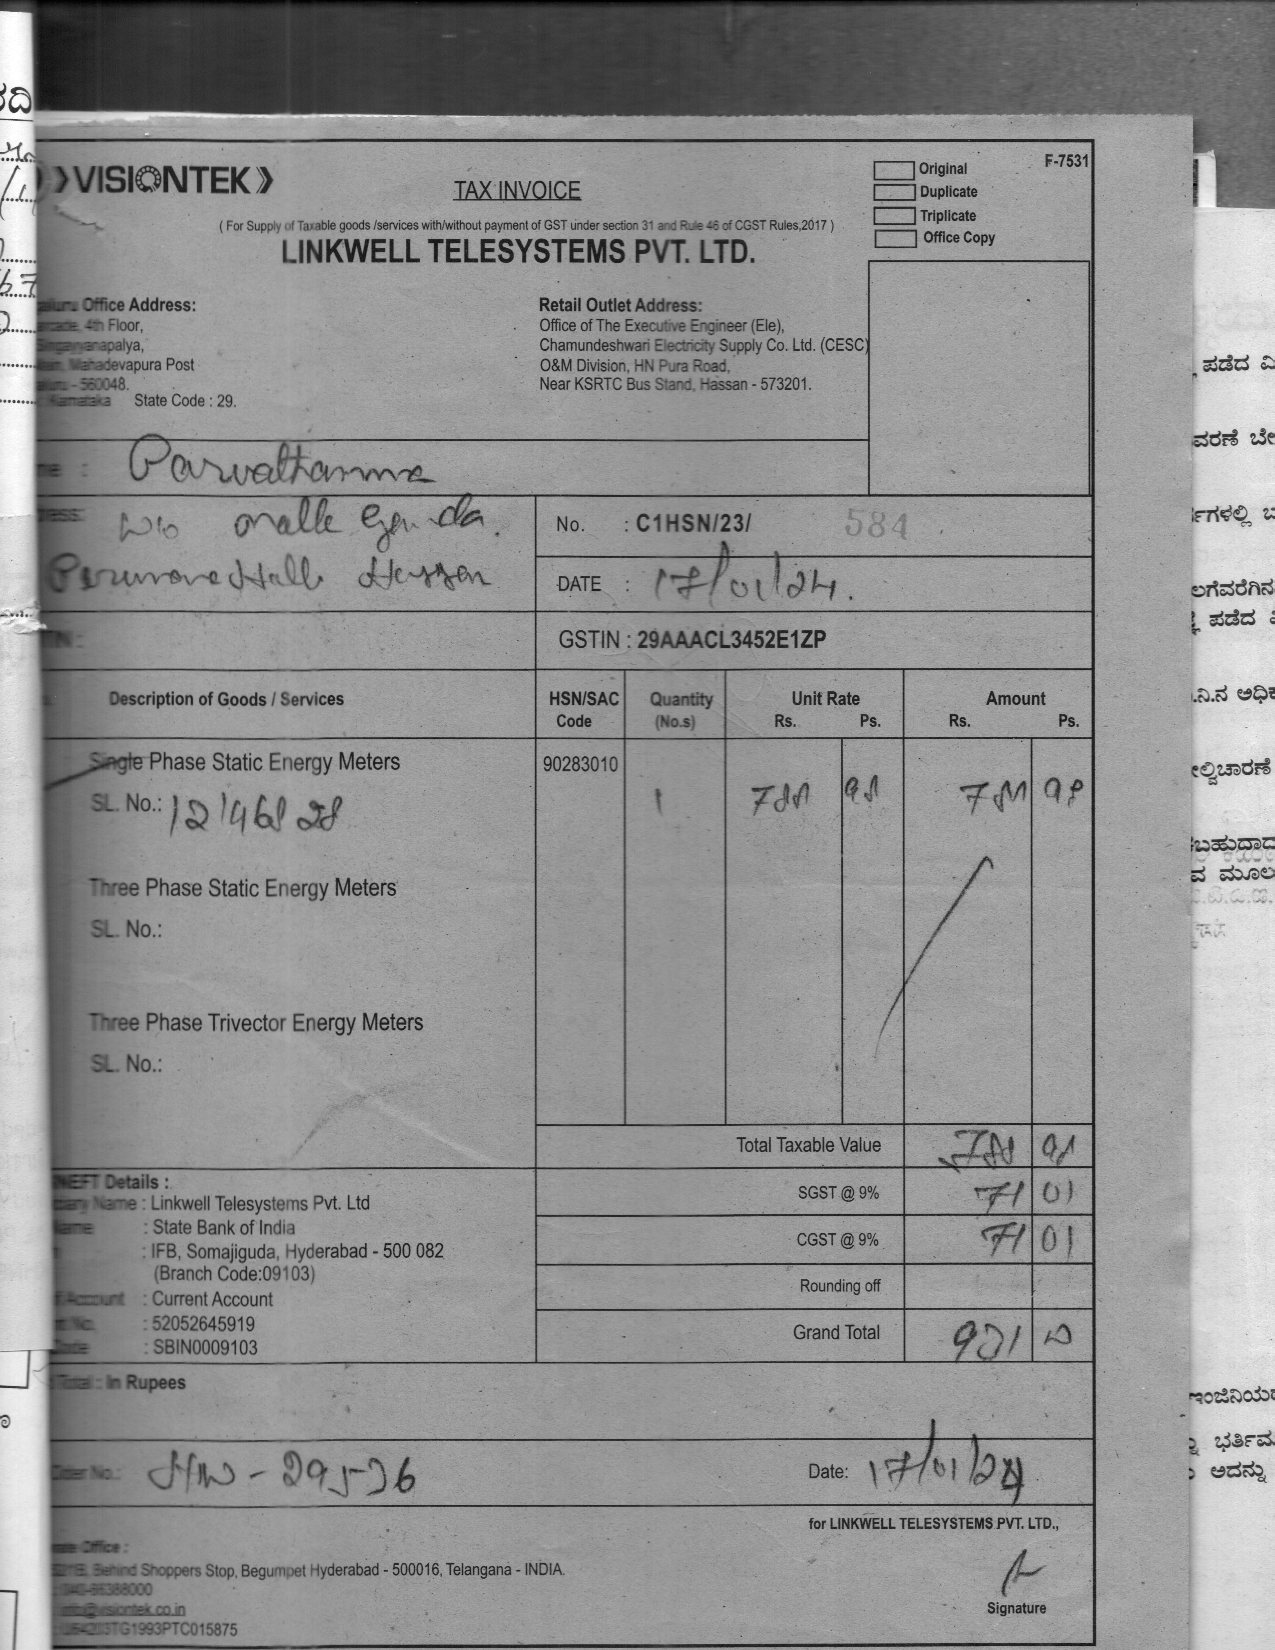 VISIONTEK
TAX INVOICE
F-7531
Original
Duplicate
Triplicate
Office Copy
( For Supply of Taxable goods /services with/without payment of GST under section 31 and Rule 46 of CGST Rules,2017 )
LINKWELL TELESYSTEMS PVT. LTD.
Office Address:
4th Floor,
Mahadevapura Post
- 560048.
Karnataka State Code : 29.
Retail Outlet Address:
Office of The Executive Engineer (Ele),
Chamundeshwari Electricity Supply Co. Ltd. (CESC)
O&M Division, HN Pura Road,
Near KSRTC Bus Stand, Hassan - 573201.
: Parvathamma
W/o
Hassan
No. : C1HSN/23/ 584
DATE : 17/01/24.
GSTIN : 29AAACL3452E1ZP
Description of Goods / Services HSN/SAC Code Quantity (No.s) Unit Rate Rs. Ps. Amount Rs. Ps.
Single Phase Static Energy Meters 90283010
SL. No.: 12146828 1 788 98 788 98
Three Phase Static Energy Meters
SL. No.:
Three Phase Trivector Energy Meters
SL. No.:
Total Taxable Value 788 98
SGST @ 9% 71 01
CGST @ 9% 71 01
Rounding off
Grand Total 931 00
NEFT Details :
Name : Linkwell Telesystems Pvt. Ltd
Name : State Bank of India
: IFB, Somajiguda, Hyderabad - 500 082
(Branch Code:09103)
Account : Current Account
: 52052645919
Code : SBIN0009103
Total : In Rupees
No.: HW-29526 Date: 17/01/24
for LINKWELL TELESYSTEMS PVT. LTD.,
Office :
Behind Shoppers Stop, Begumpet Hyderabad - 500016, Telangana - INDIA.
Signature
ಪಡೆದ
ಪಡೆದ
ಮೂಲ
ಅದನ್ನು